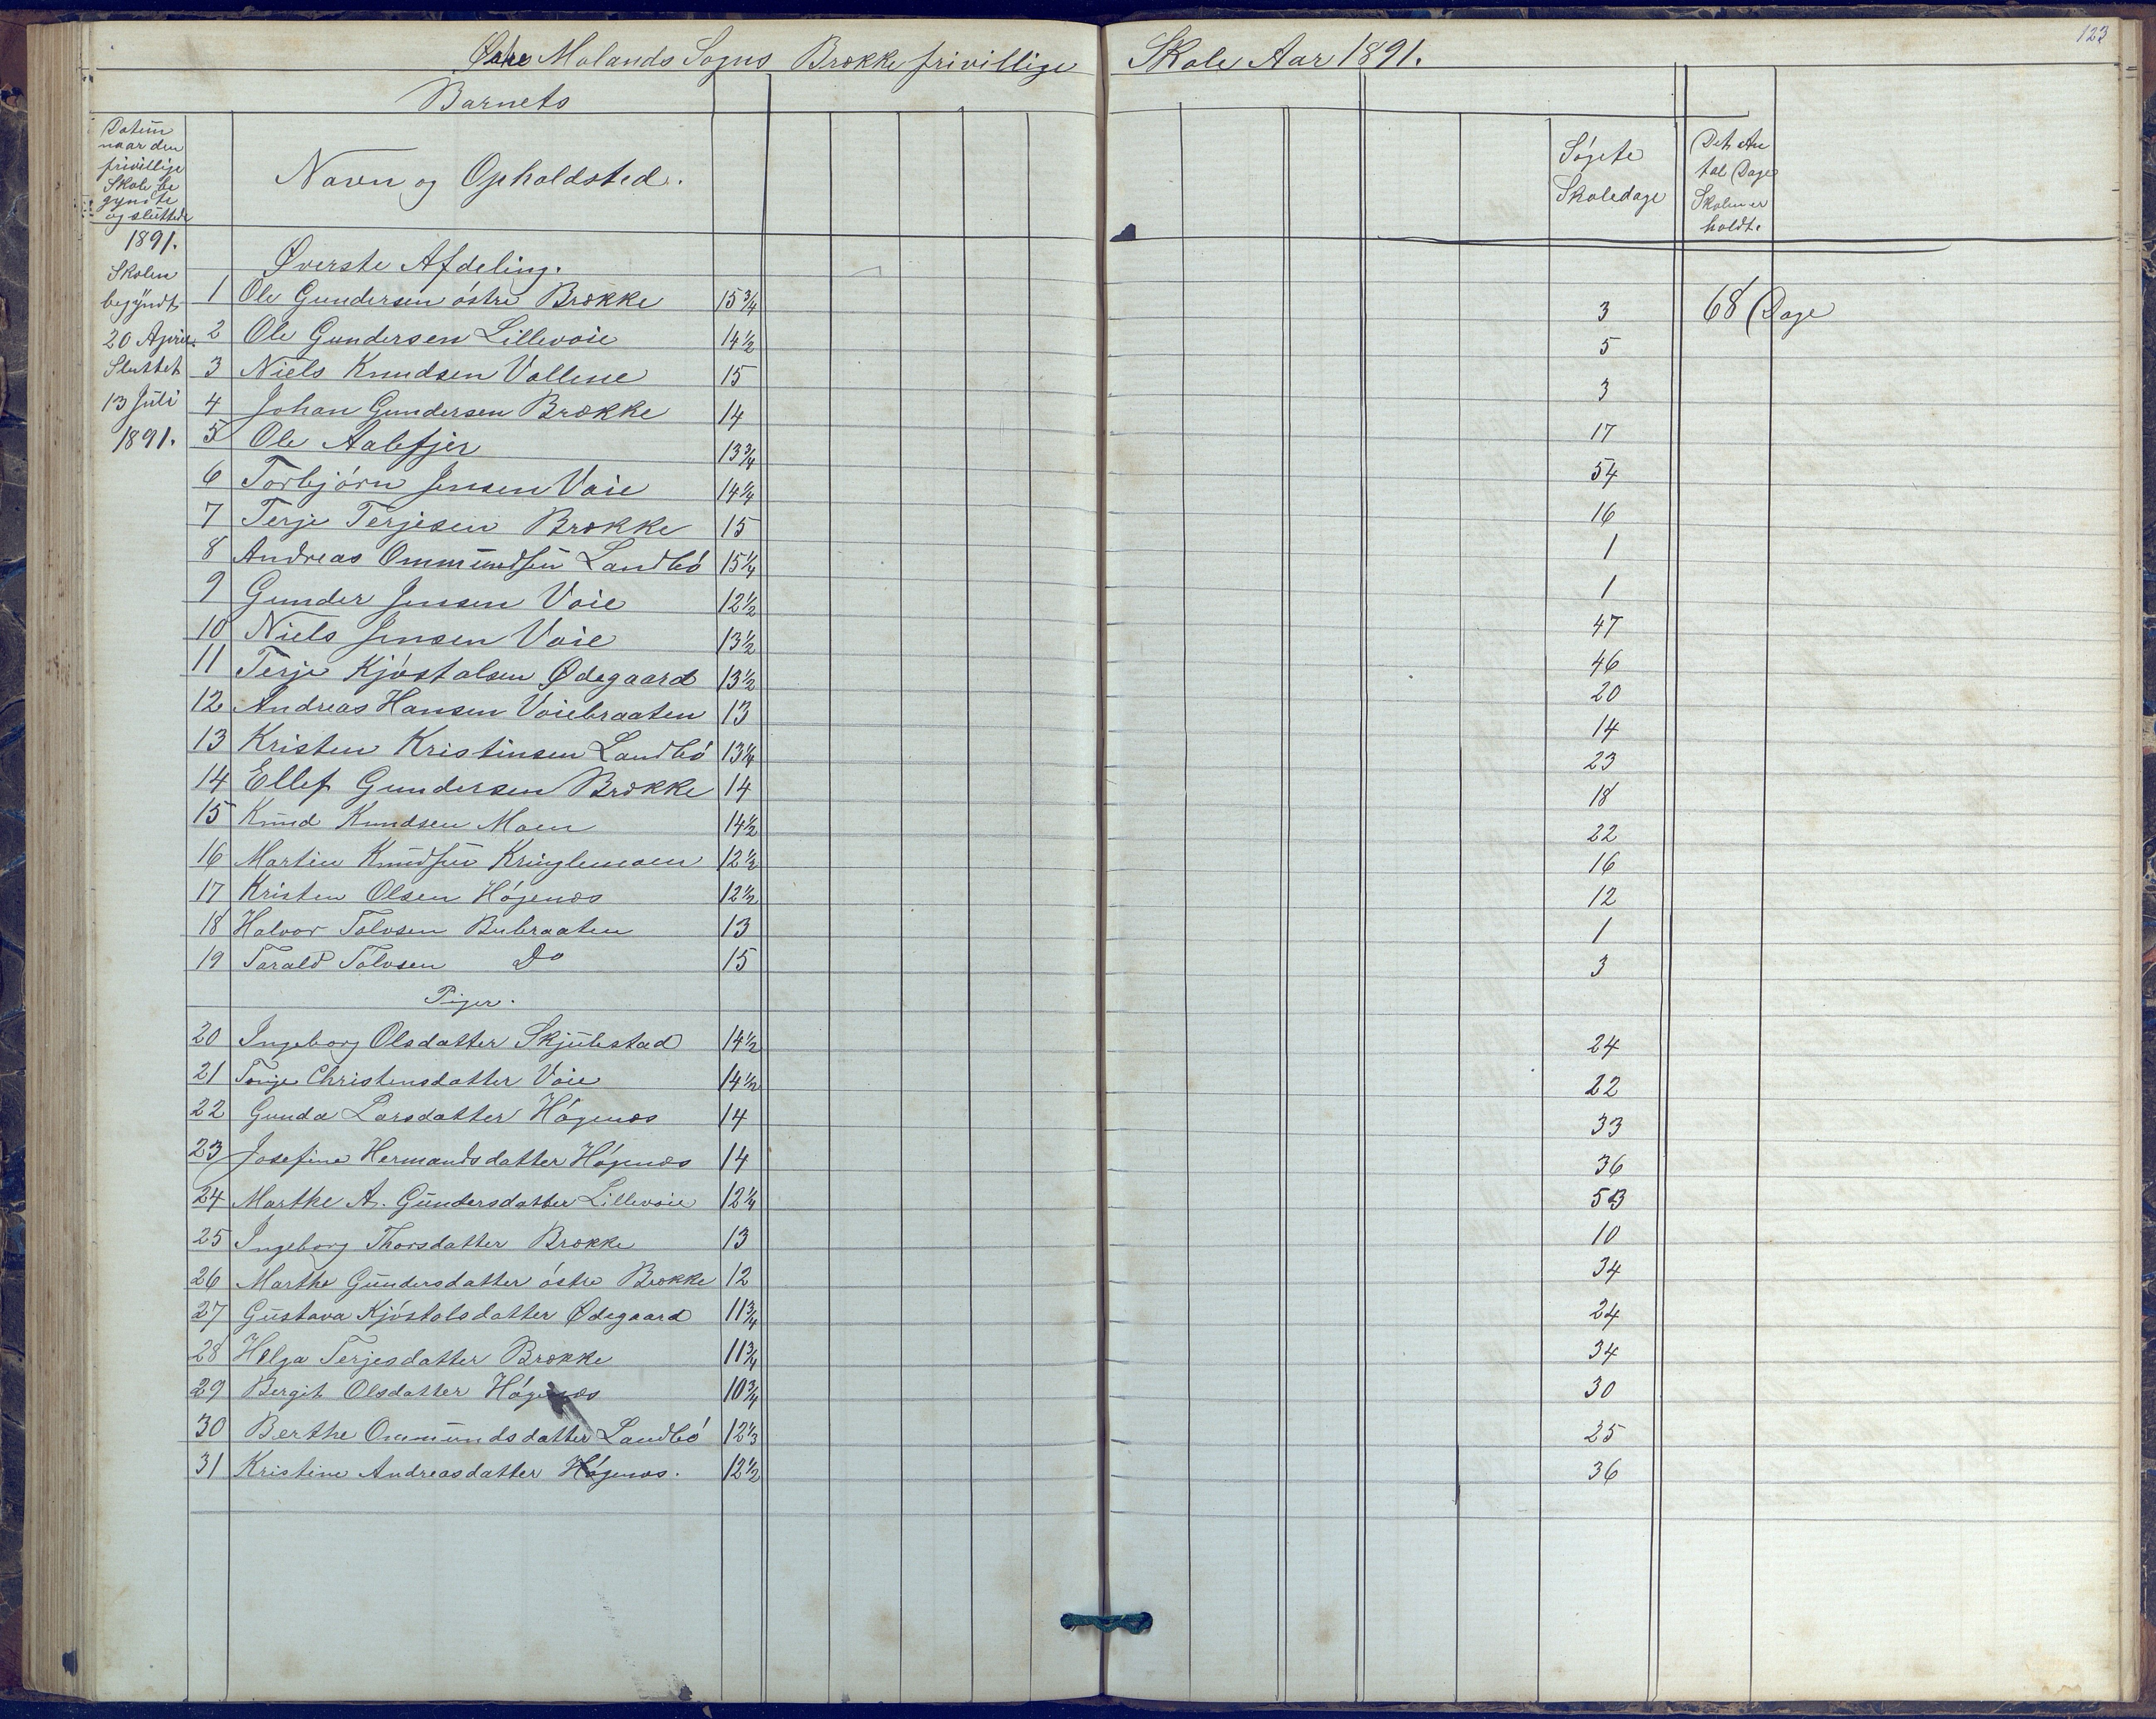 123
Østre Molands Sogns Brække frivillige Skole Aar 1891.
Barnets
Datum naar den frivillige Skole begynte og sluttede
Navn og Opholdsted.
Søgte Skoledage
Det Antal Dage Skolen er holdt.
1891.
Skolen begyndt 20 April. Sluttet 13 Juli 1891.
Øverste Afdeling.
1 Ole Gundersen óstre Brække 15 3/4 3 68 Dage
2 Ole Gundersen Lillevoie 14 1/2 5
3 Niels Knudsen Vollene 15 3
4 Johan Gundersen Brække 14 17
5 Ole Aalefjer 13 3/4 54
6 Torbjórn Jensen Voie 14 1/4 16
7 Terje Terjesen Brække 15 1
8 Andreas Ommundsen Landbó 15 1/4 1
9 Gunder Jensen Voie 12 1/2 47
10 Niels Jensen Voie 13 1/2 46
11 Terje Kjóstolsen Ødegaard 13 1/2 20
12 Andreas Hansen Voiebraaten 13 14
13 Kristen Kristinsen Landbó 13 1/4 23
14 Ellef Gundersen Brække 14 18
15 Knud Knudsen Moen 14 1/2 22
16 Martin Knudsen Kringlemoen 12 1/2 16
17 Kristen Olsen Hógenæs 12 1/2 12
18 Halvor Tolvsen Bubraaten 13 1
19 Tarald Tolvsen Do 15 3
Piger.
20 Ingeborg Olsdatter Skjulestad 14 1/2 24
21 Tonje Christensdatter Voie 14 1/2 22
22 Gunda Larsdatter Hógenæs 14 33
23 Josefine Hermandsdatter Hógenæs 14 36
24 Marthe A. Gundersdatter Lillevoie 12 1/4 53
25 Ingeborg Thorsdatter Brække 13 10
26 Marthe Gundersdatter óstre Brække 12 34
27 Gustava Kjóstolsdatter Ødegaard 11 3/4 24
28 Helga Terjesdatter Brække 11 3/4 34
29 Bergit Olsdatter Hógenæs 10 3/4 30
30 Berthe Ommundsdatter Landbó 12 1/3 25
31 Kristine Andreasdatter Hógenæs. 12 1/2 36